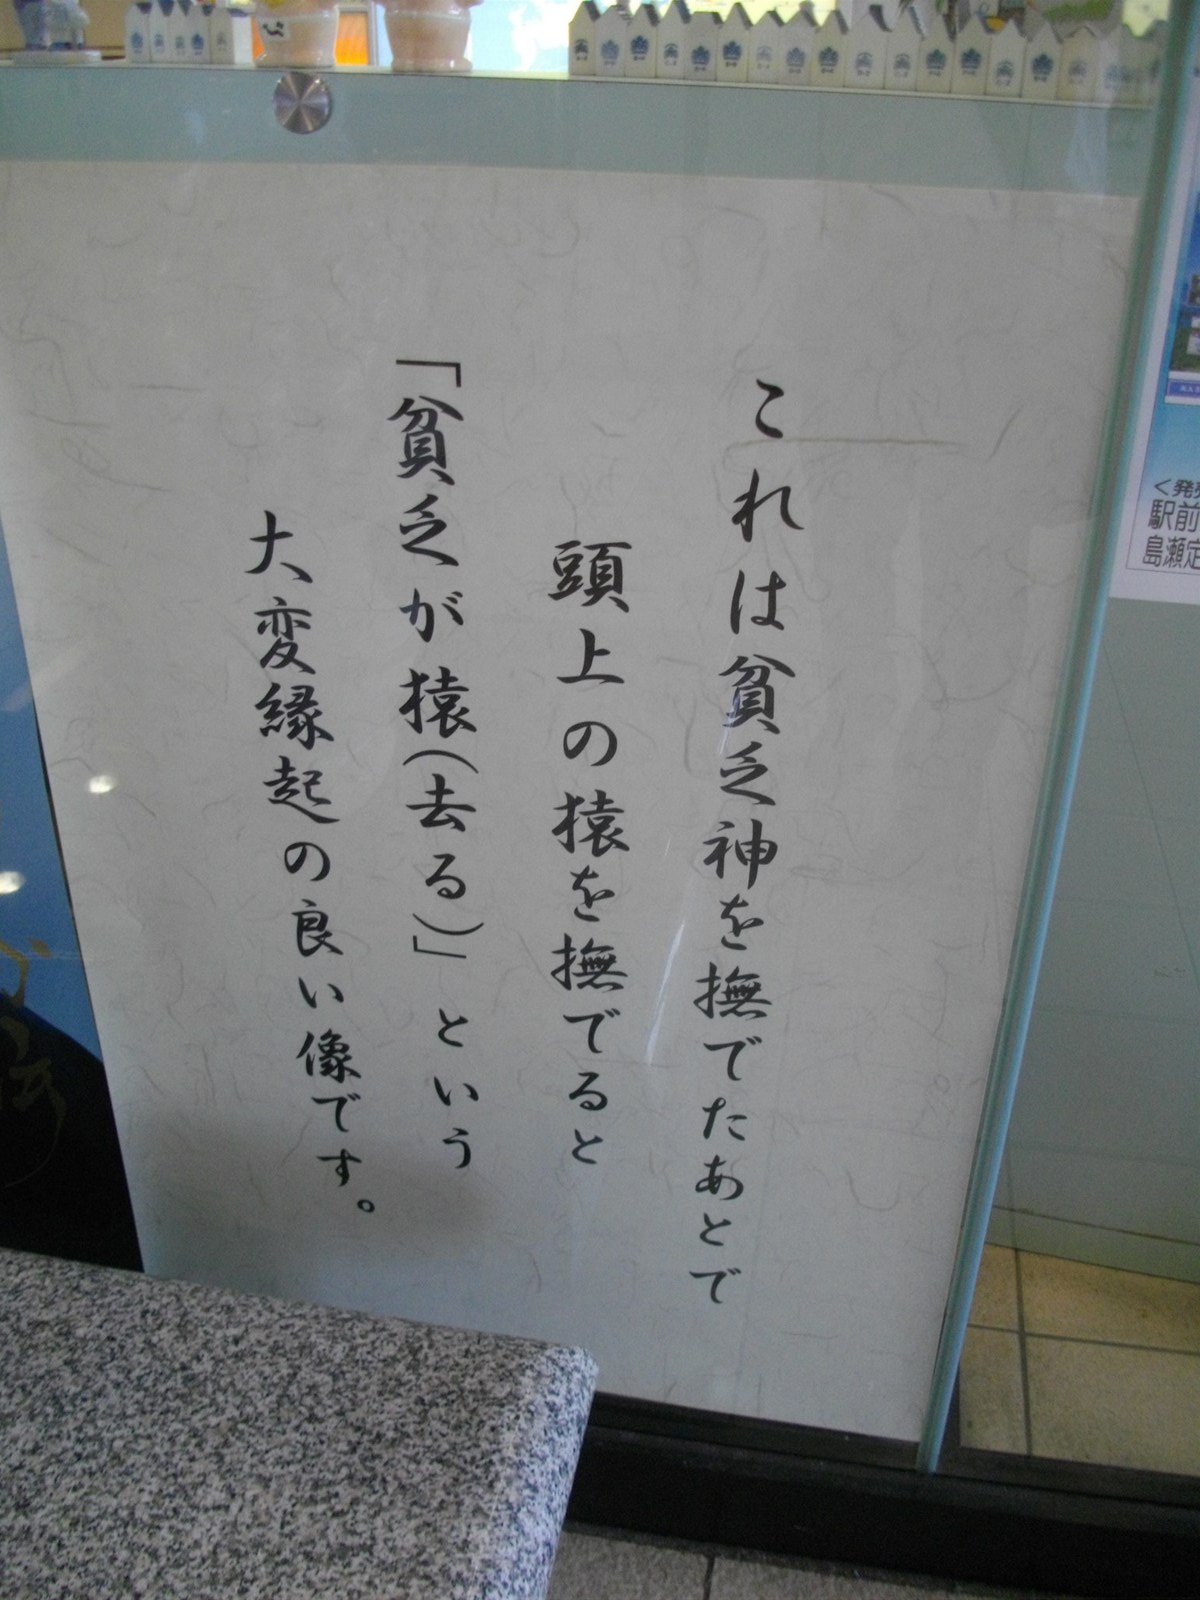 これは貧乏神を撫でたあとで
頭上の猿を撫でると
「貧乏が猿(去る)」という
大変縁起の良い像です。
<発売
駅前
島瀬定